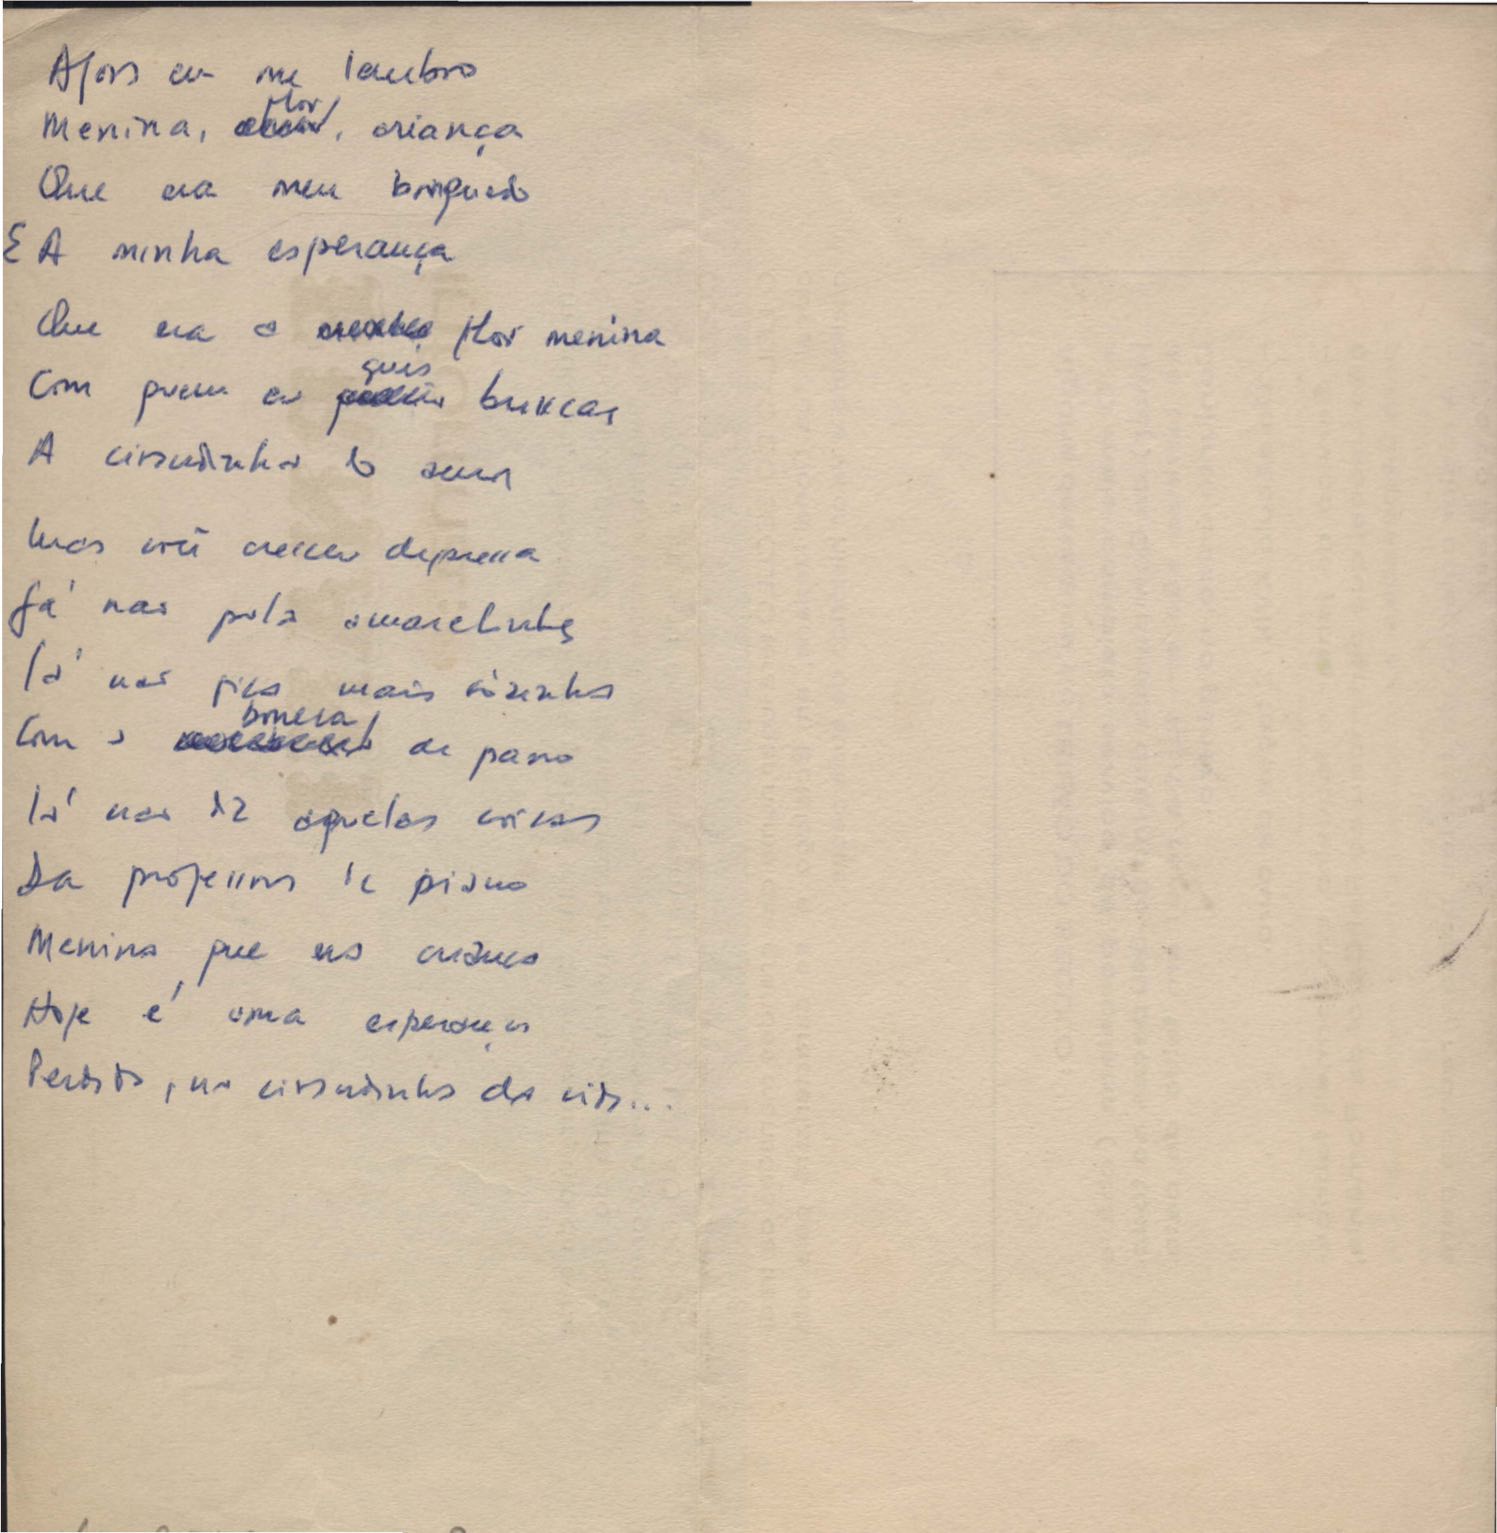 Agora eu me lembro
Menina, flor, criança
Que era meu brinquedo
E A minha esperança
Que era a flor menina
Com quem eu quis brincar
A cirandinha do amor
Mas você cresceu depressa
Já não pula amarelinha
Já não fica mais sòzinha
Com a boneca de pano
Já não diz aquelas coisas
Da professora de piano
Menina que era criança
Hoje é uma esperança
Perdida, na cirandinha da vida...